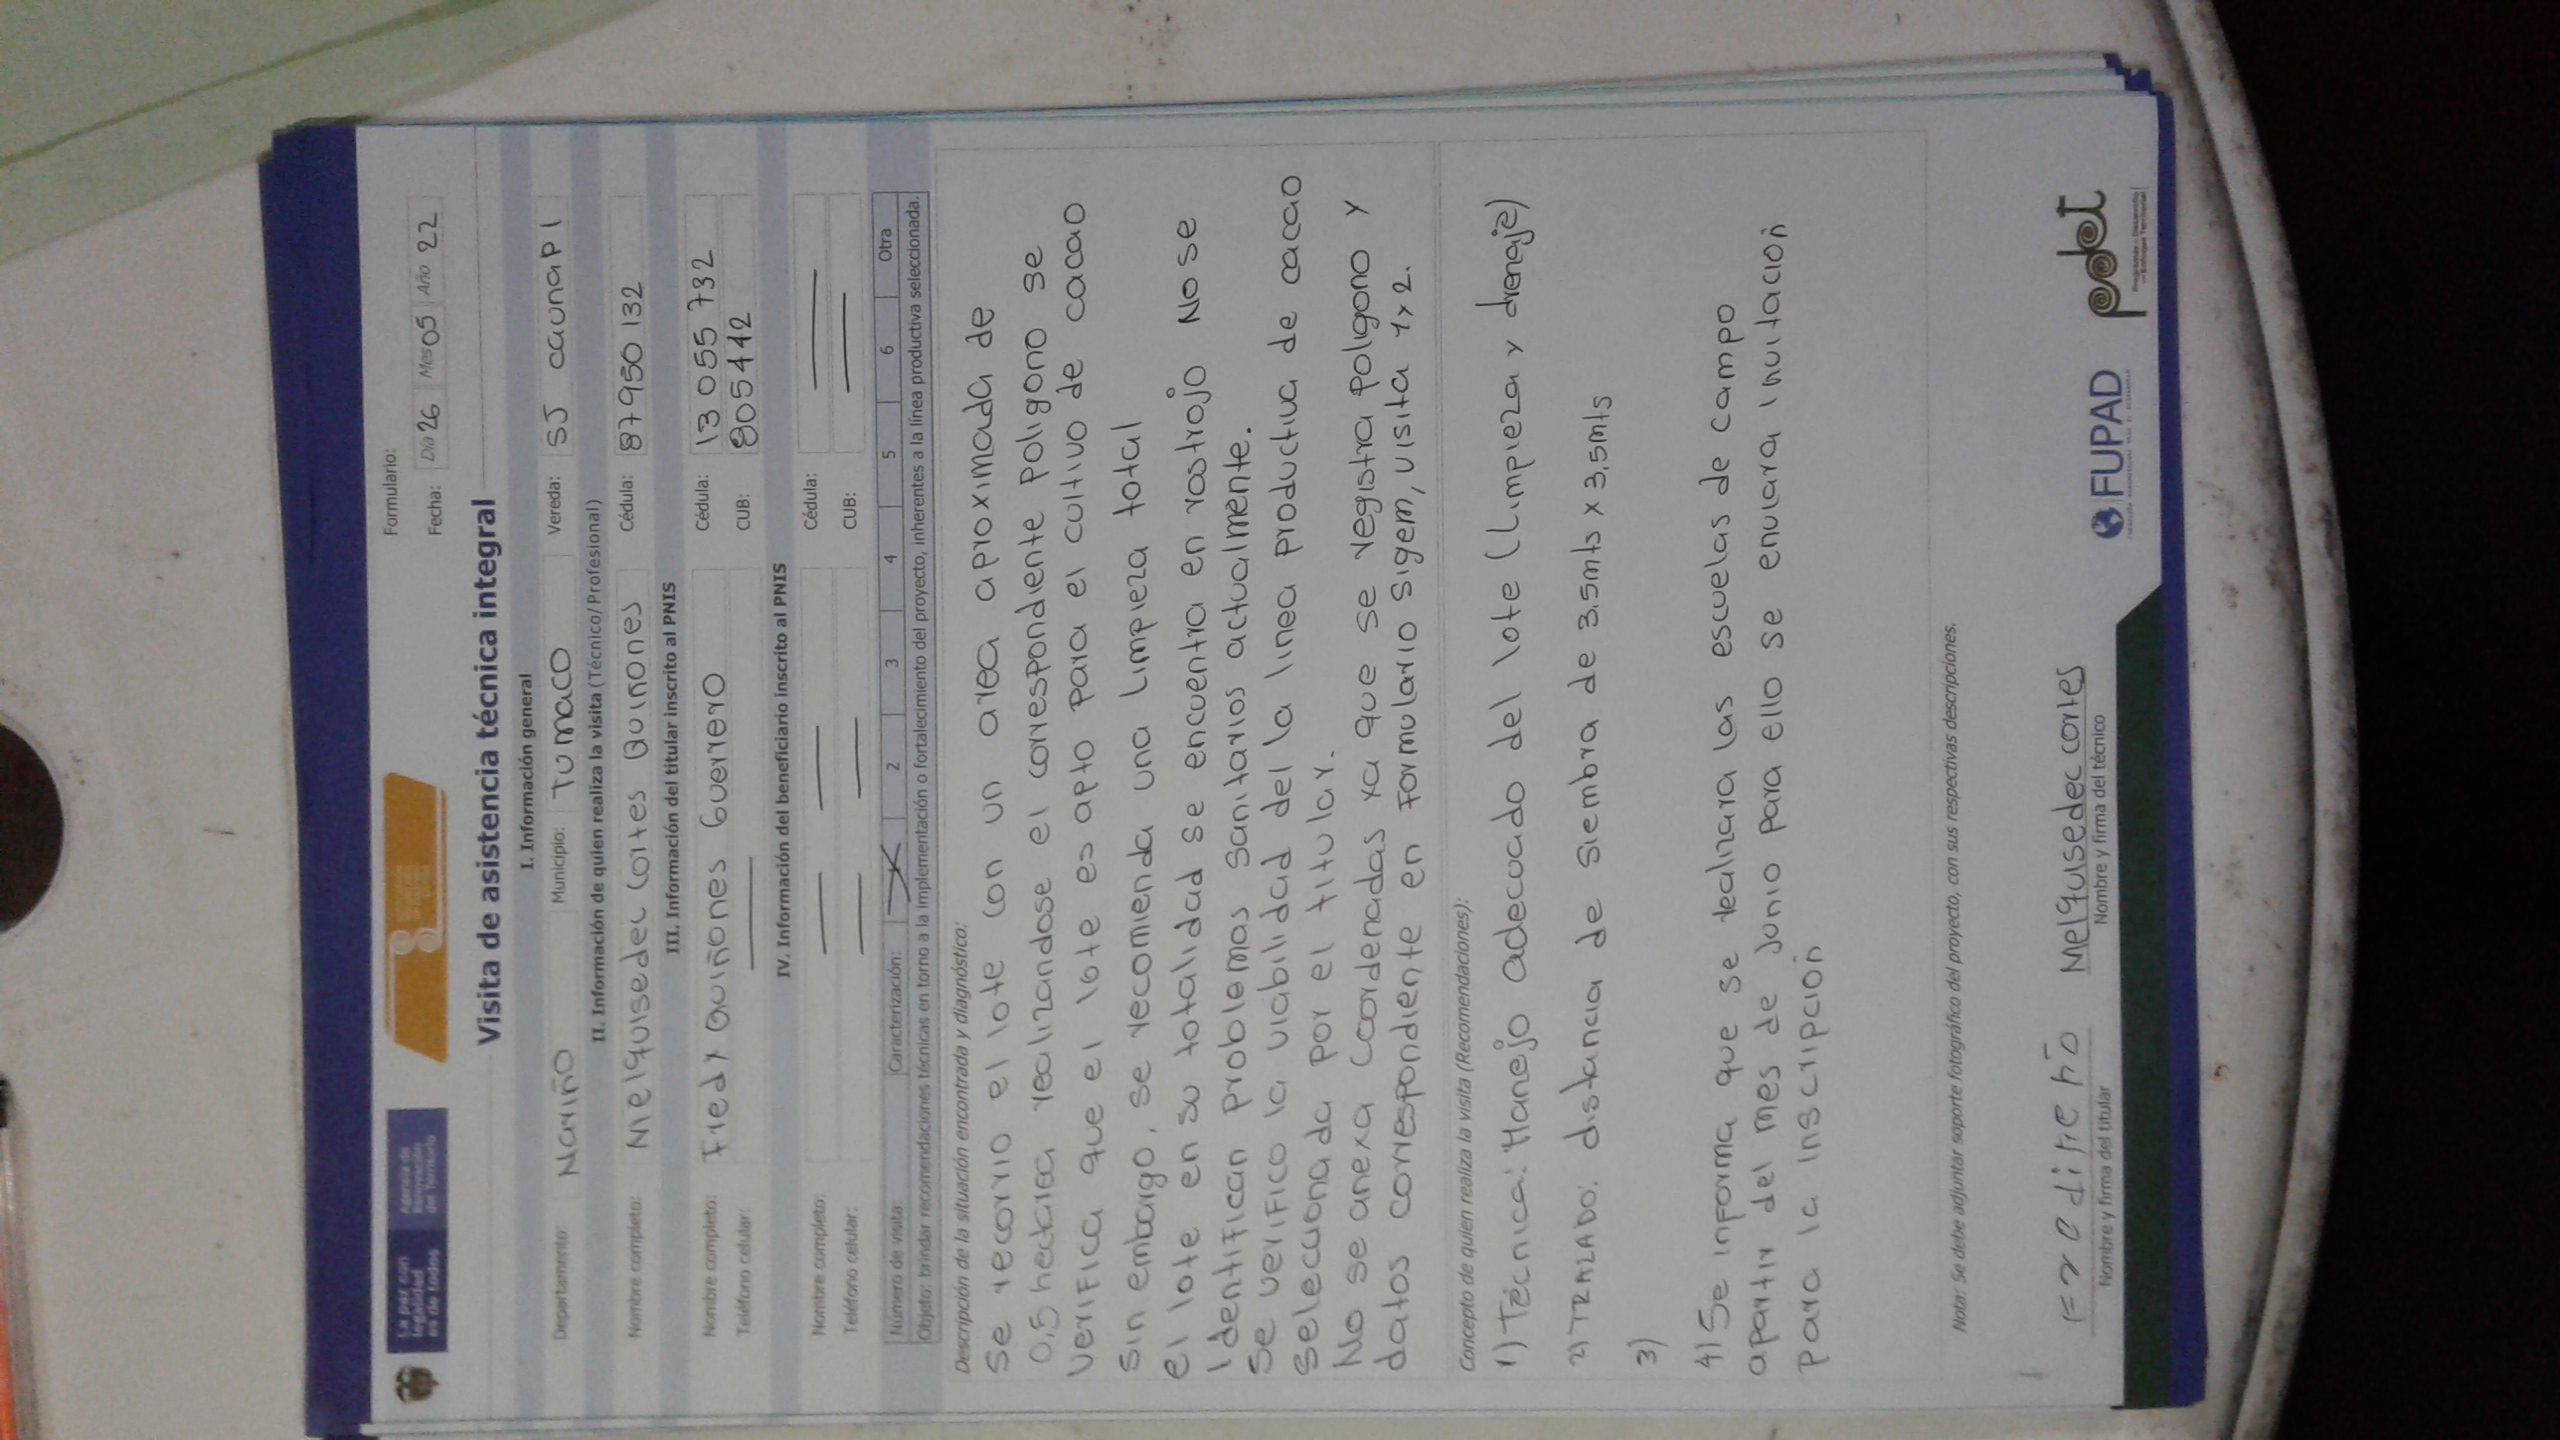 La paz con
legalidad
es de todos
Agencia de
Renovación
del Territorio
Formulario:
Fecha: Día 26 Mes 05 Año 22
Visita de asistencia técnica integral
I. Información general
Departamento: Nariño Municipio: Tumaco Vereda: SJ caunapi
II. Información de quien realiza la visita (Técnico/Profesional)
Nombre completo: Melquisedec Cortes Quiñones Cédula: 87950 132
III. Información del titular inscrito al PNIS
Nombre completo: Fredy Quiñones Guerrero Cédula: 13 055 732
Teléfono celular: CUB: 805442
IV. Información del beneficiario inscrito al PNIS
Nombre completo: Cédula:
Teléfono celular: CUB:
Número de visita: Caracterización: X 2 3 4 5 6 Otra
Objeto: brindar recomendaciones técnicas en torno a la implementación o fortalecimiento del proyecto, inherentes a la línea productiva seleccionada.
Descripción de la situación encontrada y diagnóstico:
Se recorrio el lote con un area aproximada de
0,5 hectarea realizandose el correspondiente poligono se
verifica que el lote es apto para el cultivo de cacao
sin embargo, se recomienda una limpieza total
el lote en su totalidad se encuentra en rastrojo No se
identifican problemas sanitarios actualmente.
Se verifico la viabilidad del la linea productiva de cacao
seleccionada por el titular.
No se anexa coordenadas ya que se registra poligono y
datos correspondiente en formulario sigem, visita 1x2.
Concepto de quien realiza la visita (Recomendaciones):
1) Técnica: Manejo adecuado del lote (limpieza y drenaje)
2) TRAZADO: distancia de siembra de 3.5mts x 3,5mts
3)
4) Se informa que se realizara las escuelas de campo
apartir del mes de Junio para ello se enviara invitación
para la inscripción
Nota: Se debe adjuntar soporte fotográfico del proyecto, con sus respectivas descripciones.
Melquisedec cortes
Nombre y firma del titular Nombre y firma del técnico
FUPAD
pdet
Programas de Desarrollo
con Enfoque Territorial